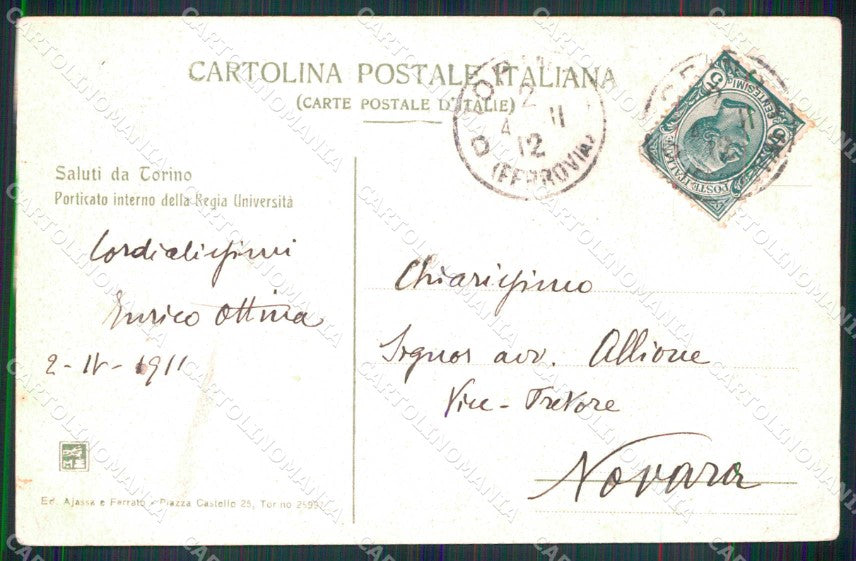 CARTOLINA POSTALE ITALIANA
(CARTE POSTALE D'ITALIE)
2
4 11
12
(FERROVIA)
CENTESIMI
POSTE ITALIANE
Saluti da Torino
Porticato interno della Regia Università
Cordialissimi
Enrico Ottina
2-IV-1911
Chiarissimo
Signor avv. Allione
Vice-Pretore
Novara
Ed. Ajassa e Ferrato - Piazza Castello 25, Torino
CARTOLINOMANIA